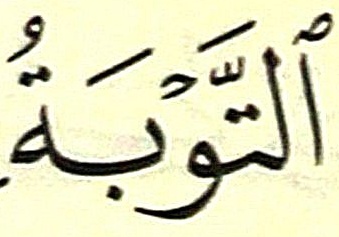 ٱلتَّوْبَةُ